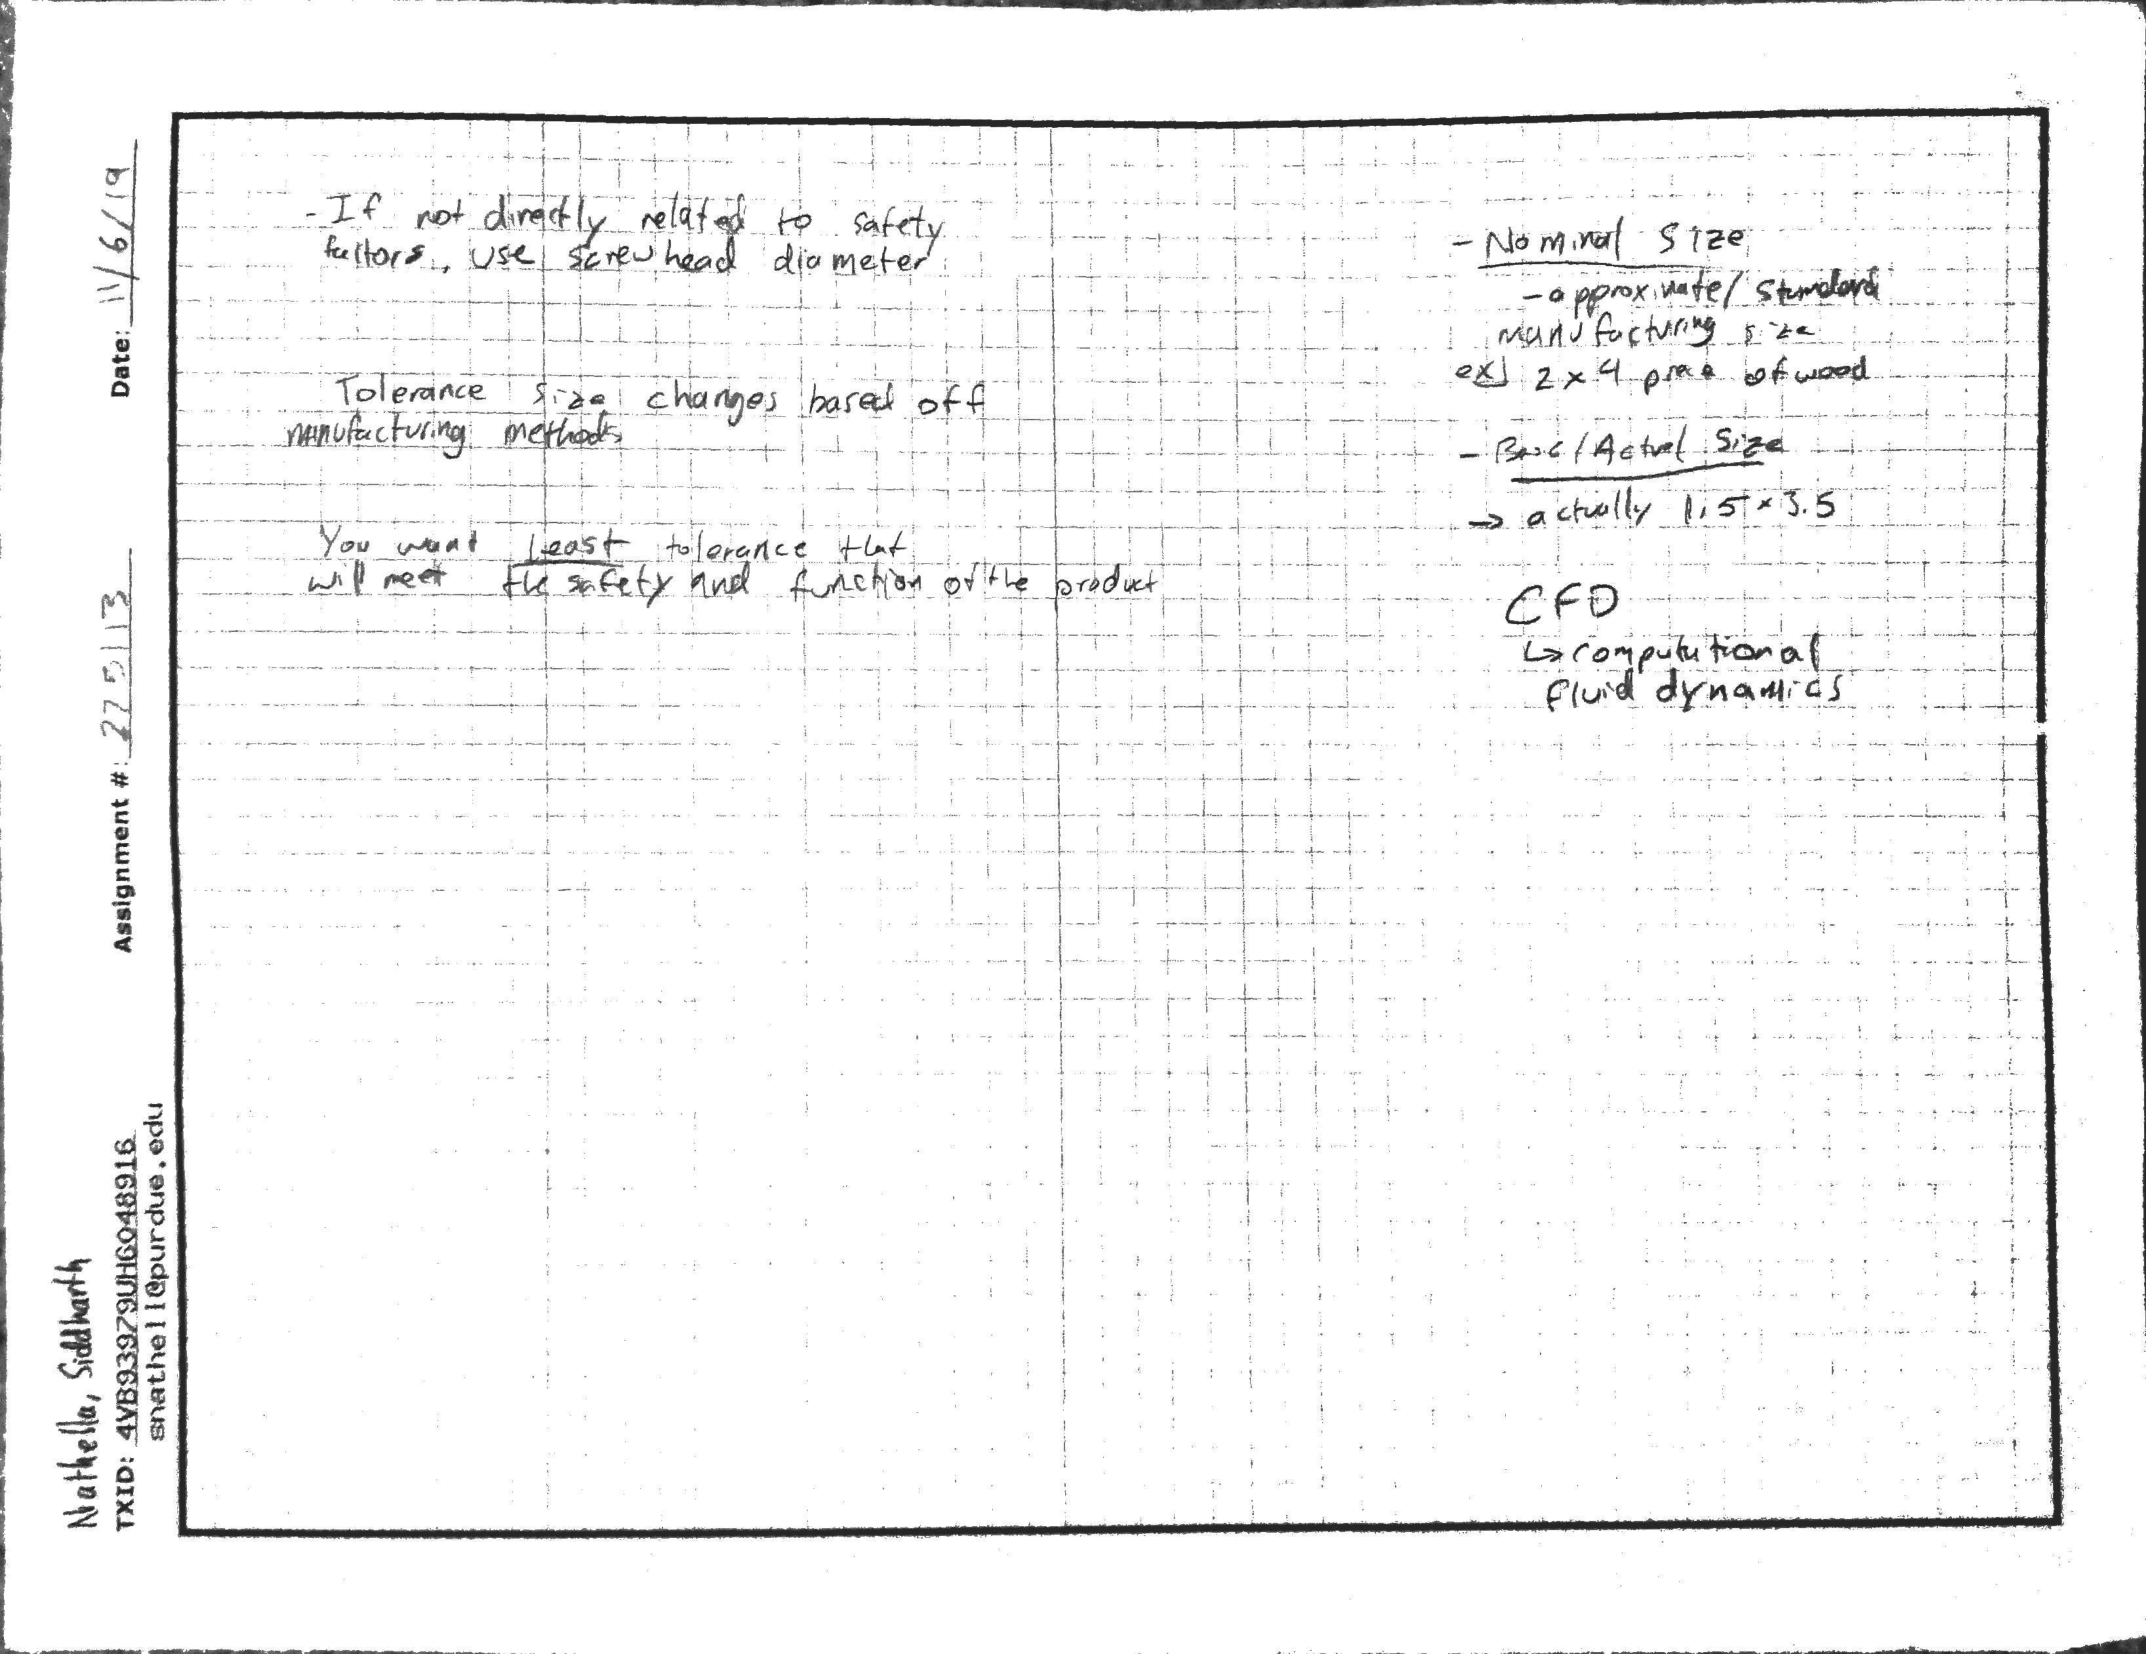 Nathella, Siddharth
TXID: 4VB93979UH6048916
snathell@purdue.edu
Assignment #:
Date: 11/6/19
- If not directly related to safety
factors, use screwhead diameter
Tolerance size changes based off
manufacturing methods
You want Least tolerance that
will meet the safety and function of the product
- Nominal Size
- approximate/Standard
manufacturing size
ex] 2 x 4 piece of wood
- Basic/Actual Size
→ actually 1.5 x 3.5
CFD
↳ computational
fluid dynamics